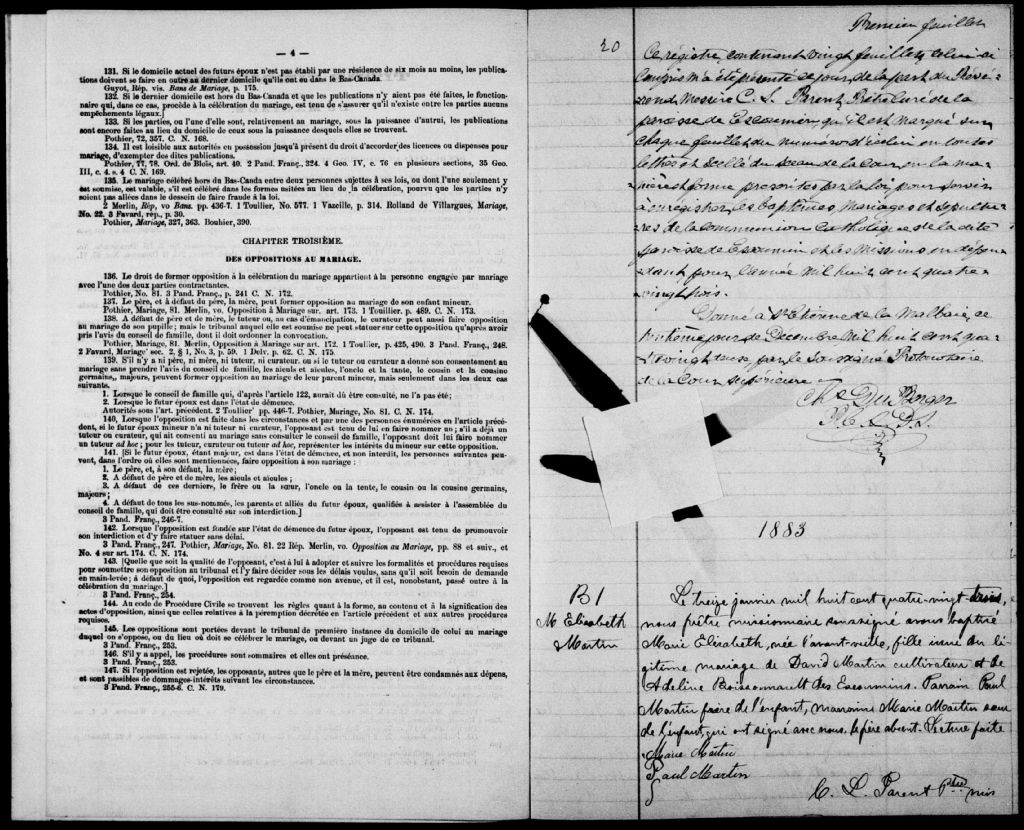 — 4 —
131. Si le domicile actuel des futurs époux n'est pas établi par une résidence de six mois au moins, les publica-
tions doivent se faire en outre au dernier domicile qu'ils ont eu dans le Bas-Canada.
Guyot, Rép. vis. Bans de Mariage, p. 175.
132. Si le dernier domicile est hors du Bas-Canada et que les publications n'y aient pas été faites, le fonction-
naire qui, dans ce cas, procède à la célébration du mariage, est tenu de s'assurer qu'il n'existe entre les parties aucuns
empêchements légaux.]
133. Si les parties, ou l'une d'elle sont, relativement au mariage, sous la puissance d'autrui, les publications
sont encore faites au lieu du domicile de ceux sous la puissance desquels elles se trouvent.
Pothier, 72, 357. C. N. 168.
134. Il est loisible aux autorités en possession jusqu'à présent du droit d'accorder des licences ou dispenses pour
mariage, d'exempter des dites publications.
Pothier, 77, 78. Ord. de Blois, art. 40. 2 Pand. Franç., 324. 4 Geo. IV, c. 76 en plusieurs sections, 35 Geo.
III, c. 4. s. 4 C. N. 169.
135. Le mariage célébré hors du Bas-Canada entre deux personnes sujettes à ses lois, ou dont l'une seulement y
est soumise, est valable, s'il est célébré dans les formes usitées au lieu de la célébration, pourvu que les parties n'y
soient pas allées dans le dessein de faire fraude à la loi.
2 Merlin, Rép, vo Bans. pp. 436-7. 1 Toullier, No. 577. 1 Vazeille, p. 314. Rolland de Villargues, Mariage,
No. 22. 3 Favard, rép., p. 30.
Pothier, Mariage, 327, 363. Bouhier, 390.
CHAPITRE TROISIÈME.
DES OPPOSITIONS AU MARIAGE.
136. Le droit de former opposition à la célébration du mariage appartient à la personne engagée par mariage
avec l'une des deux parties contractantes.
Pothier, No. 81. 3 Pand. Franç., p. 241 C. N. 172.
137. Le père, et à défaut du père, la mère, peut former opposition au mariage de son enfant mineur.
Pothier, Mariage, 81. Merlin, vo. Opposition à Mariage sur. art. 173. 1 Toullier. p. 489. C. N. 173.
138. A défaut de père et de mère, le tuteur ou, au cas d'émancipation, le curateur peut aussi faire opposition
au mariage de son pupille; mais le tribunal auquel elle est soumise ne peut statuer sur cette opposition qu'après avoir
pris l'avis du conseil de famille, dont il doit ordonner la convocation.
Pothier, Mariage, 81. Merlin, Opposition à Mariage sur art. 172. 1 Toullier, p. 425, 490. 3 Pand. Franç., 248.
2 Favard, Mariage' sec. 2, § 1, No. 3, p. 59. 1 Delv. p. 62. C. N. 175.
139. S'il n'y a ni père, ni mère, ni tuteur, ni curateur, ou si le tuteur ou curateur a donné son consentement au
mariage sans prendre l'avis du conseil de famille, les aïeuls et aïeules, l'oncle et la tante, le cousin et la cousine
germains,, majeurs, peuvent former opposition au mariage de leur parent mineur, mais seulement dans les deux cas
suivants.
1. Lorsque le conseil de famille qui, d'après l'article 122, aurait dû être consulté, ne l'a pas été;
2. Lorsque le futur époux est dans l'état de démence.
Autorités sous l'art. précédent. 2 Toullier' pp. 446-7. Pothier, Mariage, No. 81. C. N. 174.
140, Lorsque l'opposition est faite dans les circonstances et par une des personnes énumérées en l'article précé-
dent, si le futur époux mineur n'a ni tuteur ni curateur, l'opposant est tenu de lui en faire nommer un; s'il a déjà un
tuteur ou curateur, qui ait consenti au mariage sans consulter le conseil de famille, l'opposant doit lui faire nommer
un tuteur ad hoc; pour les tuteur, curateur ou tuteur ad hoc, représenter les intérêts du mineur sur cette opposition.
141. [Si le futur époux, étant majeur, est dans l'état de démence, et non interdit, les personnes suivantes peu-
vent, dans l'ordre où elles sont mentionnées, faire opposition à son mariage :
1. Le père, et, à son défaut, la mère;
2. A défaut de père et de mère, les aïeuls et aïeules;
3. A défaut de ces derniers, le frère ou la sœur, l'oncle ou la tante, le cousin ou la cousine germains,
majeurs;
4. A défaut de tous les sus-nommés, les parents et alliés du futur époux, qualifiés à assister à l'assemblée du
conseil de famille, qui doit être consulté sur son interdiction.]
3 Pand. Franç., 246-7.
142. Lorsque l'opposition est fondée sur l'état de démence du futur époux, l'opposant est tenu de promouvoir
son interdiction et d'y faire statuer sans délai.
3 Pand. Franç., 247. Pothier, Mariage, No. 81. 22 Rép. Merlin, vo. Opposition au Mariage, pp. 88 et suiv., et
No. 4 sur art. 174. C. N. 174.
143. [Quelle que soit la qualité de l'opposant, c'est à lui à adopter et suivre les formalités et procédures requises
pour soumettre son opposition au tribunal et l'y faire décider sous les délais voulus, sans qu'il soit besoin de demande
en main-levée; à défaut de quoi, l'opposition est regardée comme non avenue, et il est, nonobstant, passé outre à la
célébration du mariage.]
3 Pand. Franç., 254.
144. Au code de Procédure Civile se trouvent les règles quant à la forme, au contenu et à la signification des
actes d'opposition, ainsi que celles relatives à la péremption décrétée en l'article précédent et aux autres procédures
requises.
145. Les oppositions sont portées devant le tribunal de première instance du domicile de celui au mariage
duquel on s'oppose, ou du lieu où doit se célébrer le mariage, ou devant un juge de ce tribunal.
3 Pand. Franç., 253.
146. S'il y a appel, les procédures sont sommaires et elles ont préséance.
3 Pand. Franç., 253.
147. Si l'opposition est rejetée, les opposants, autres que le père et la mère, peuvent être condamnés aux dépens,
et sont passibles de dommages-intérêts suivant les circonstances.
3 Pand. Franç., 255-6. C. N. 179.
Premier feuillet
20
Ce régistre contenant vingt feuillets celui ci
compris m'a été présenté ce jour, de la part du Révé-
rend Messire C. L. Parent Prêtre Curé de la
paroisse de Escoumin qu'il est marqué sur
chaque feuillet du numéro d'icelui en toutes
lettres et scellé du sceau de la Cour en la ma-
nière et forme prescrites par la loi, pour servir
à enrégistrer les baptêmes mariages et sépultu-
res de la communion Catholique de la dite
paroisse de Escoumin et les missions en dépen-
dant pour l'année mil huit cent quatre
vingt trois.
Donné à St Etienne de la Malbaie, ce
huitième jour de Décembre mil huit cent qua-
tre vingt deux, par le soussigné Protonotaire
de la Cour supérieure
Chs Du Berger
P. C. S. D. S.
1883
B 1
M. Elisabeth
Martin
Le treize janvier mil huit cent quatre-vingt trois,
nous prêtre missionnaire soussigné avons baptisé
Marie Elisabeth, née l'avant-veille, fille issue du lé-
gitime mariage de David Martin cultivateur et de
Adeline Boissonnault des Escoumins. Parrain Paul
Martin frère de l'enfant, marraine Marie Martin sœur
de l'enfant, qui ont signé avec nous. le père absent. Lecture faite
Marie Martin
Paul Martin
C. L. Parent Ptre mis